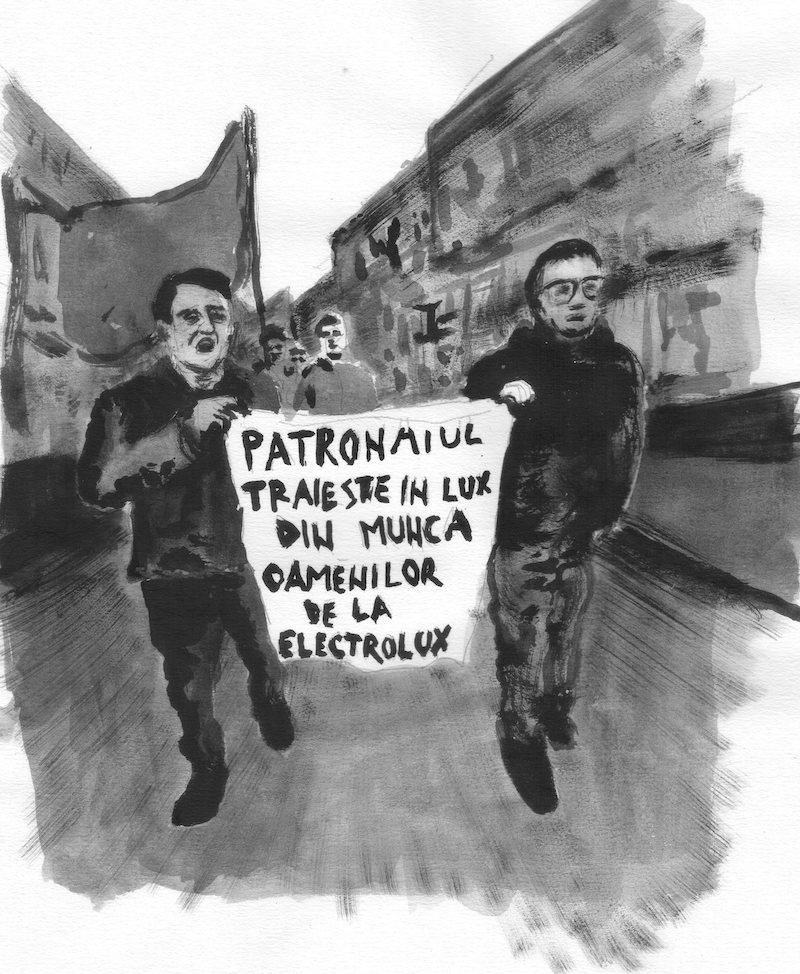 PATRONATUL
TRAIESTE IN LUX
DIN MUNCA
OAMENILOR
DE LA
ELECTROLUX